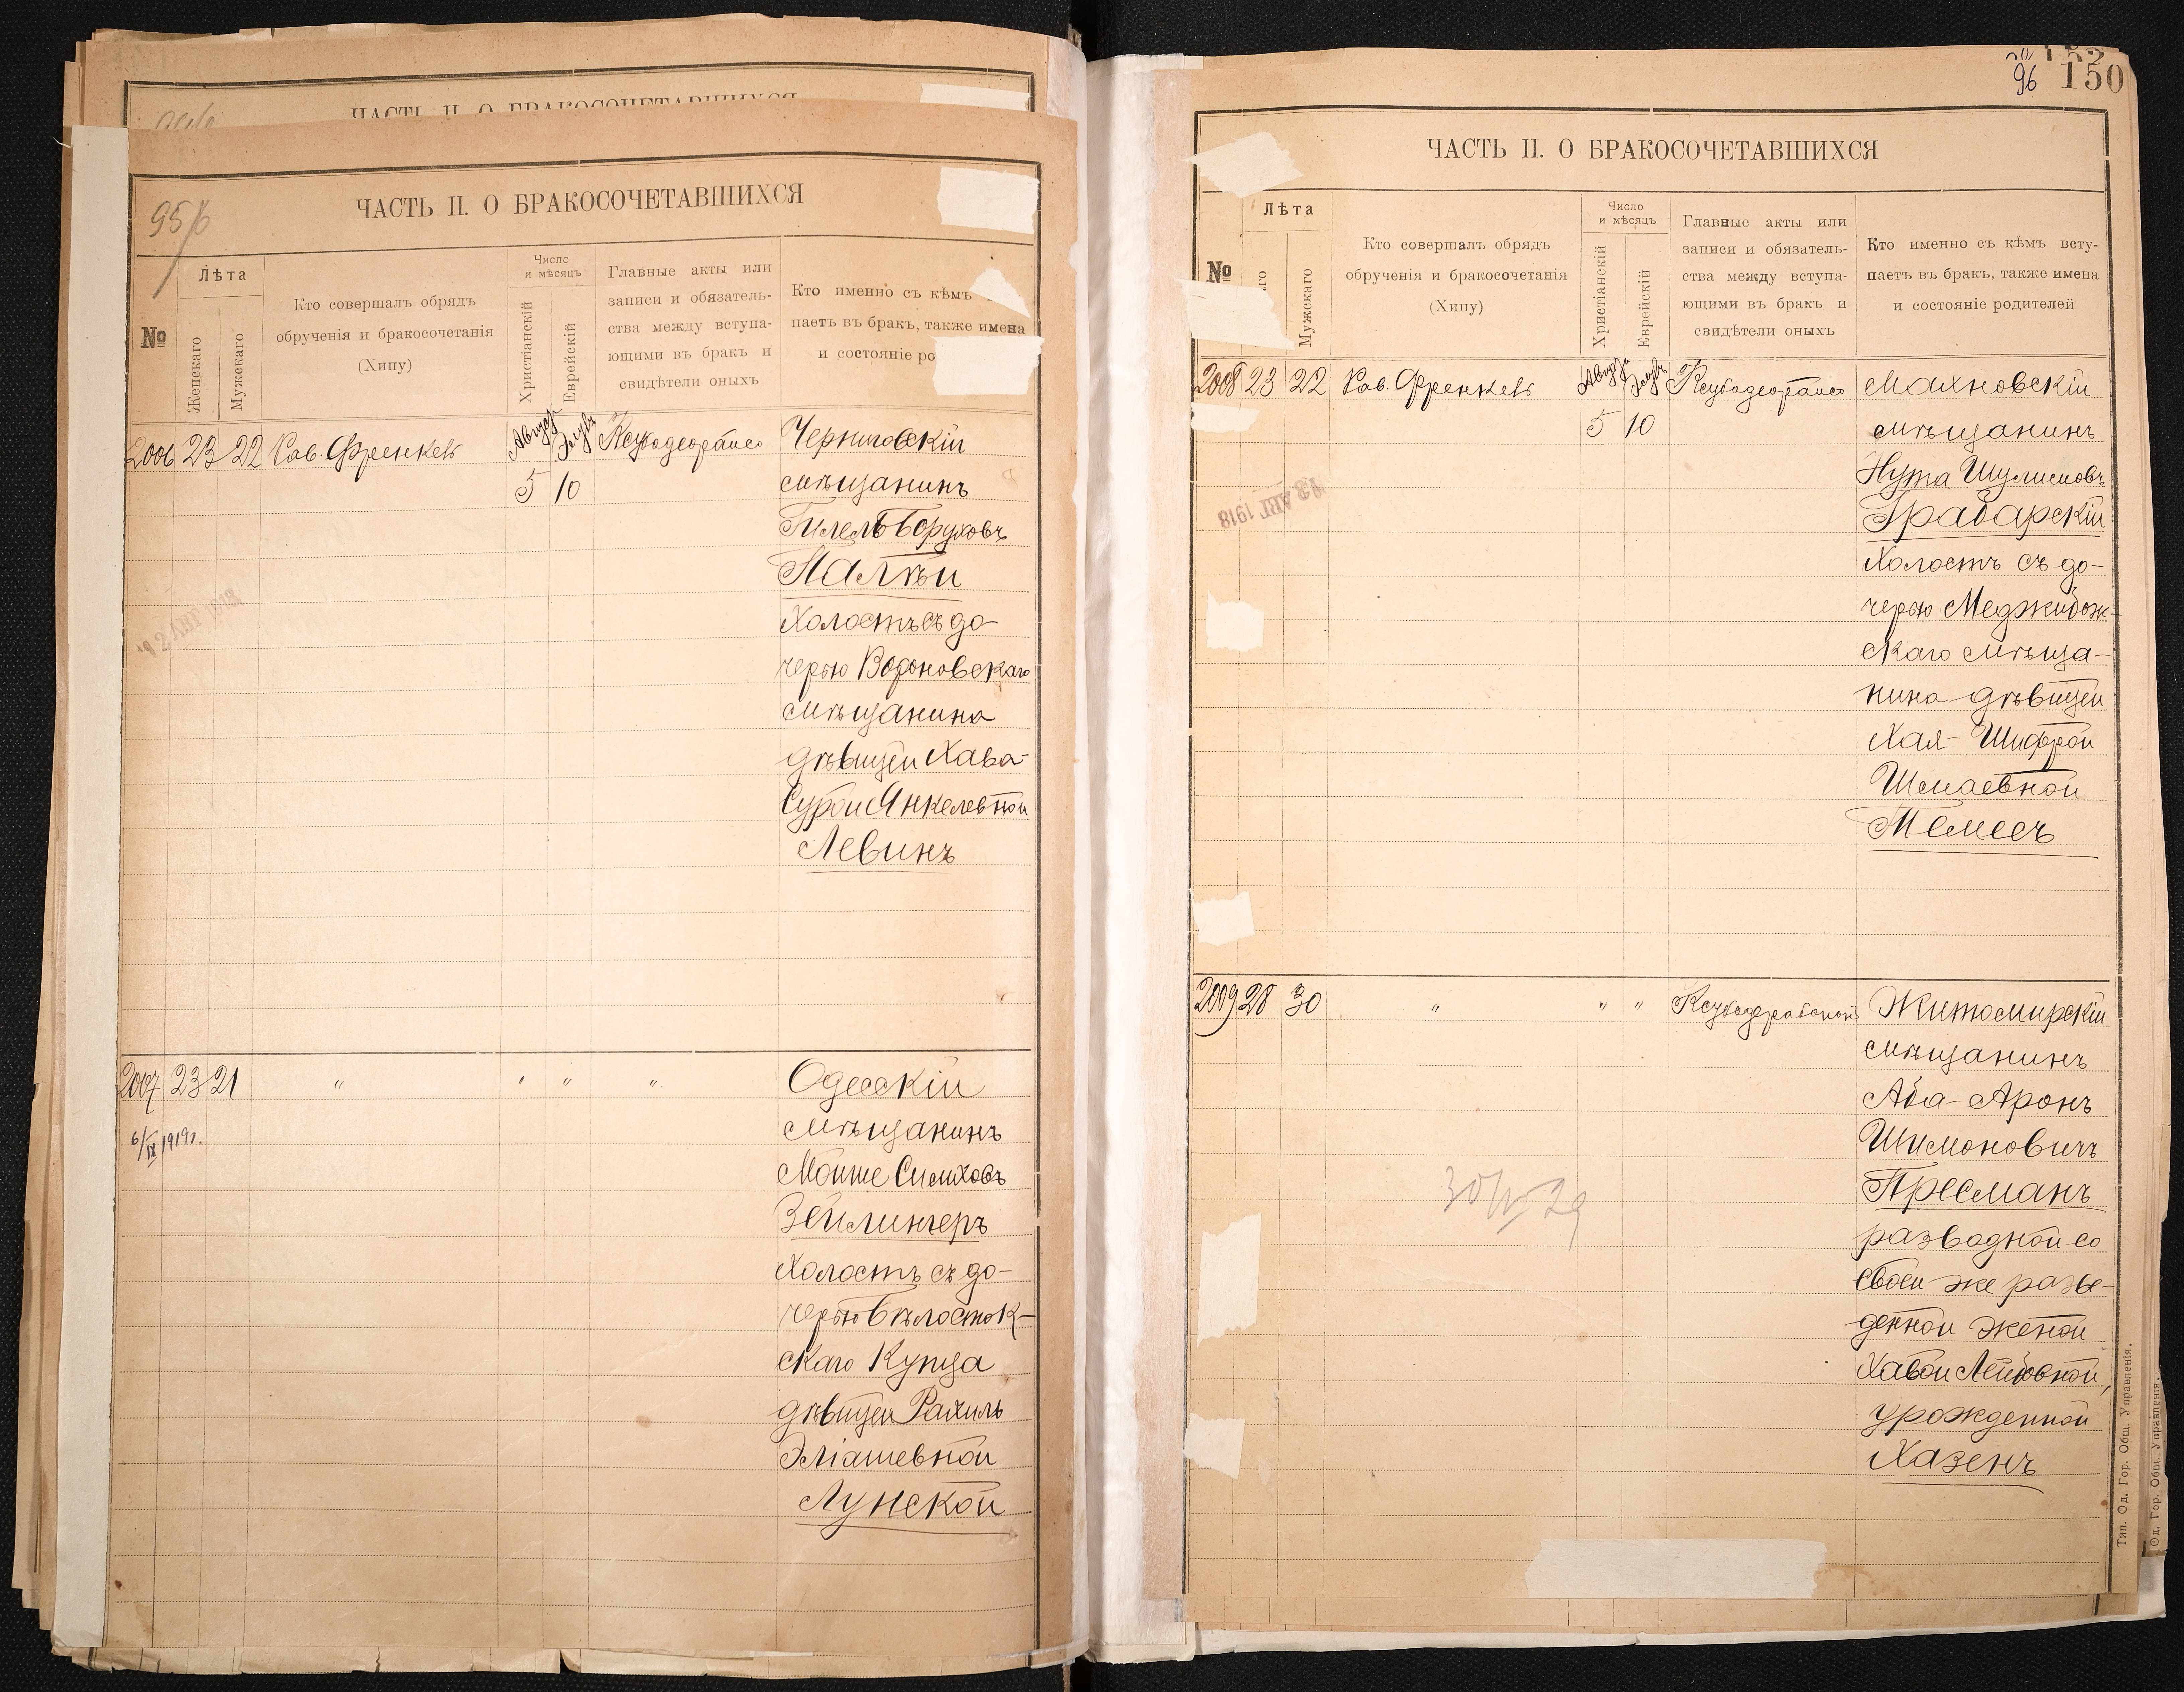 ЧАСТЬ II. О БРАКОСОЧЕТАВШИХСЯ
95/б
ЧАСТЬ II. О БРАКОСОЧЕТАВШИХСЯ
№
Лѣта
Женскаго
Мужскаго
Кто совершалъ обрядъ
обрученія и бракосочетанія
(Хипу)
Число
и мѣсяцъ
Христіанскій
Еврейскій
Главные акты или
записи и обязатель-
ства между вступа-
ющими въ бракъ и
свидѣтели оныхъ
Кто именно съ кѣмъ
паетъ въ бракъ, также имена
и состояніе ро
2006 23 22 Рав. Френкель Август Элулъ Черниговскій
5 10 мѣщанинъ
Гилель Боруховъ
Палѣй
Холостъ съ до-
черью Вороновскаго
мѣщанина
дѣвицей Хава-
Сурой Янкелевной
Левинъ
2007 23 21 " " " " Одесскій
6/IX 1919г. мѣщанинъ
Мойше Симховъ
Зейлингеръ
Холостъ съ до-
черью Бѣлосток-
скаго Купца
дѣвицей Рахиль
Эліашевной
Лунской
96 150
ЧАСТЬ II. О БРАКОСОЧЕТАВШИХСЯ
№
Лѣта
го
Мужскаго
Кто совершалъ обрядъ
обрученія и бракосочетанія
(Хипу)
Число
и мѣсяцъ
Христіанскій
Еврейскій
Главные акты или
записи и обязатель-
ства между вступа-
ющими въ бракъ и
свидѣтели оныхъ
Кто именно съ кѣмъ всту-
паетъ въ бракъ, также имена
и состояніе родителей
2008 23 22 Рав. Френкель Август Элулъ Махновскій
5 10 мѣщанинъ
Нута Шулимовъ
АВГ 1918
Грабарскій
Холостъ съ до-
черью Меджибож-
скаго мѣща-
нина дѣвицей
Хая-Шифрой
Шмаевной
Темесъ
2009 28 30 " " " Житомирскій
мѣщанинъ
Аба-Аронъ
Шимоновичъ
Пресманъ
разводной со
своей же разве-
денной женой
Хавой Лейбовной,
урожденной
Хазенъ
Тип. Од. Гор. Общ. Управленія.
Од. Гор. Общ. Управленія.